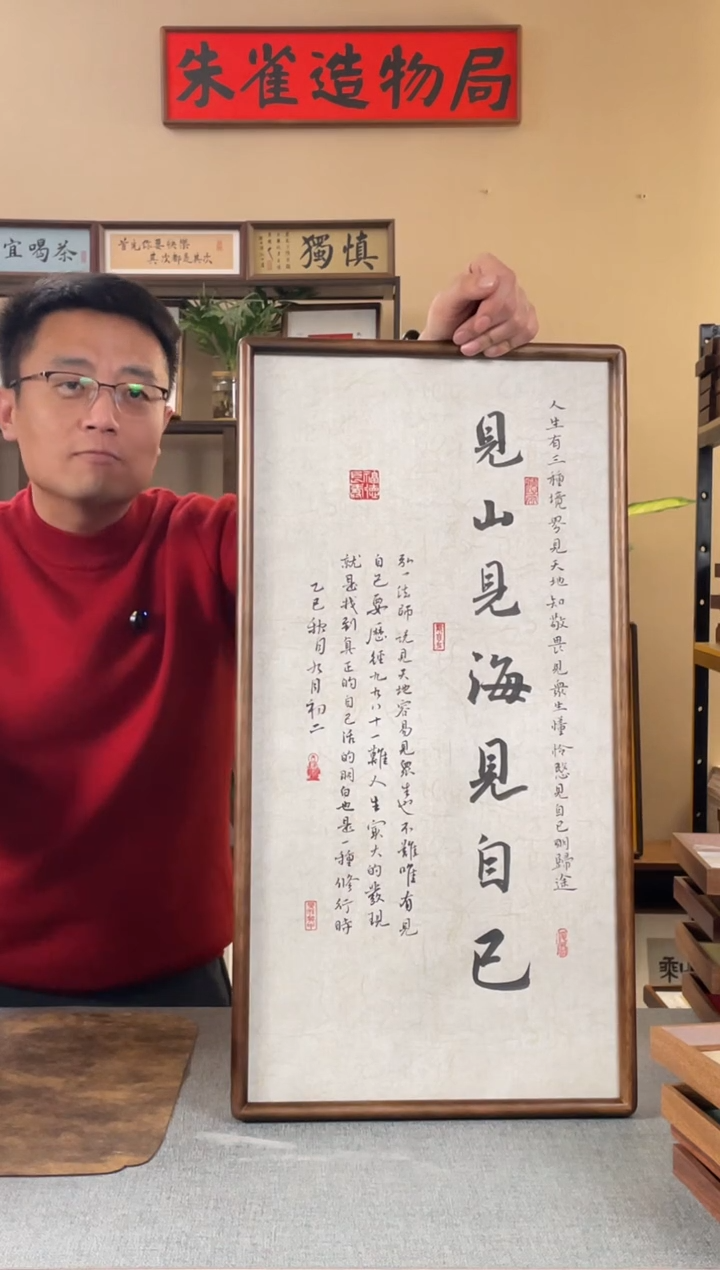 朱雀造物局
宜喝茶
首先你要快乐
其次都是其次
慎獨
人生有三種境界見天地知敬畏見衆生懂怜愍見自己明歸途
見山見海見自己
弘一法師説見天地容易見衆生也不難唯有見
自己要歷經九九八十一難人生最大的發現
就是找到真正的自己活的明白也是一種修行時
乙巳秋月九月初二